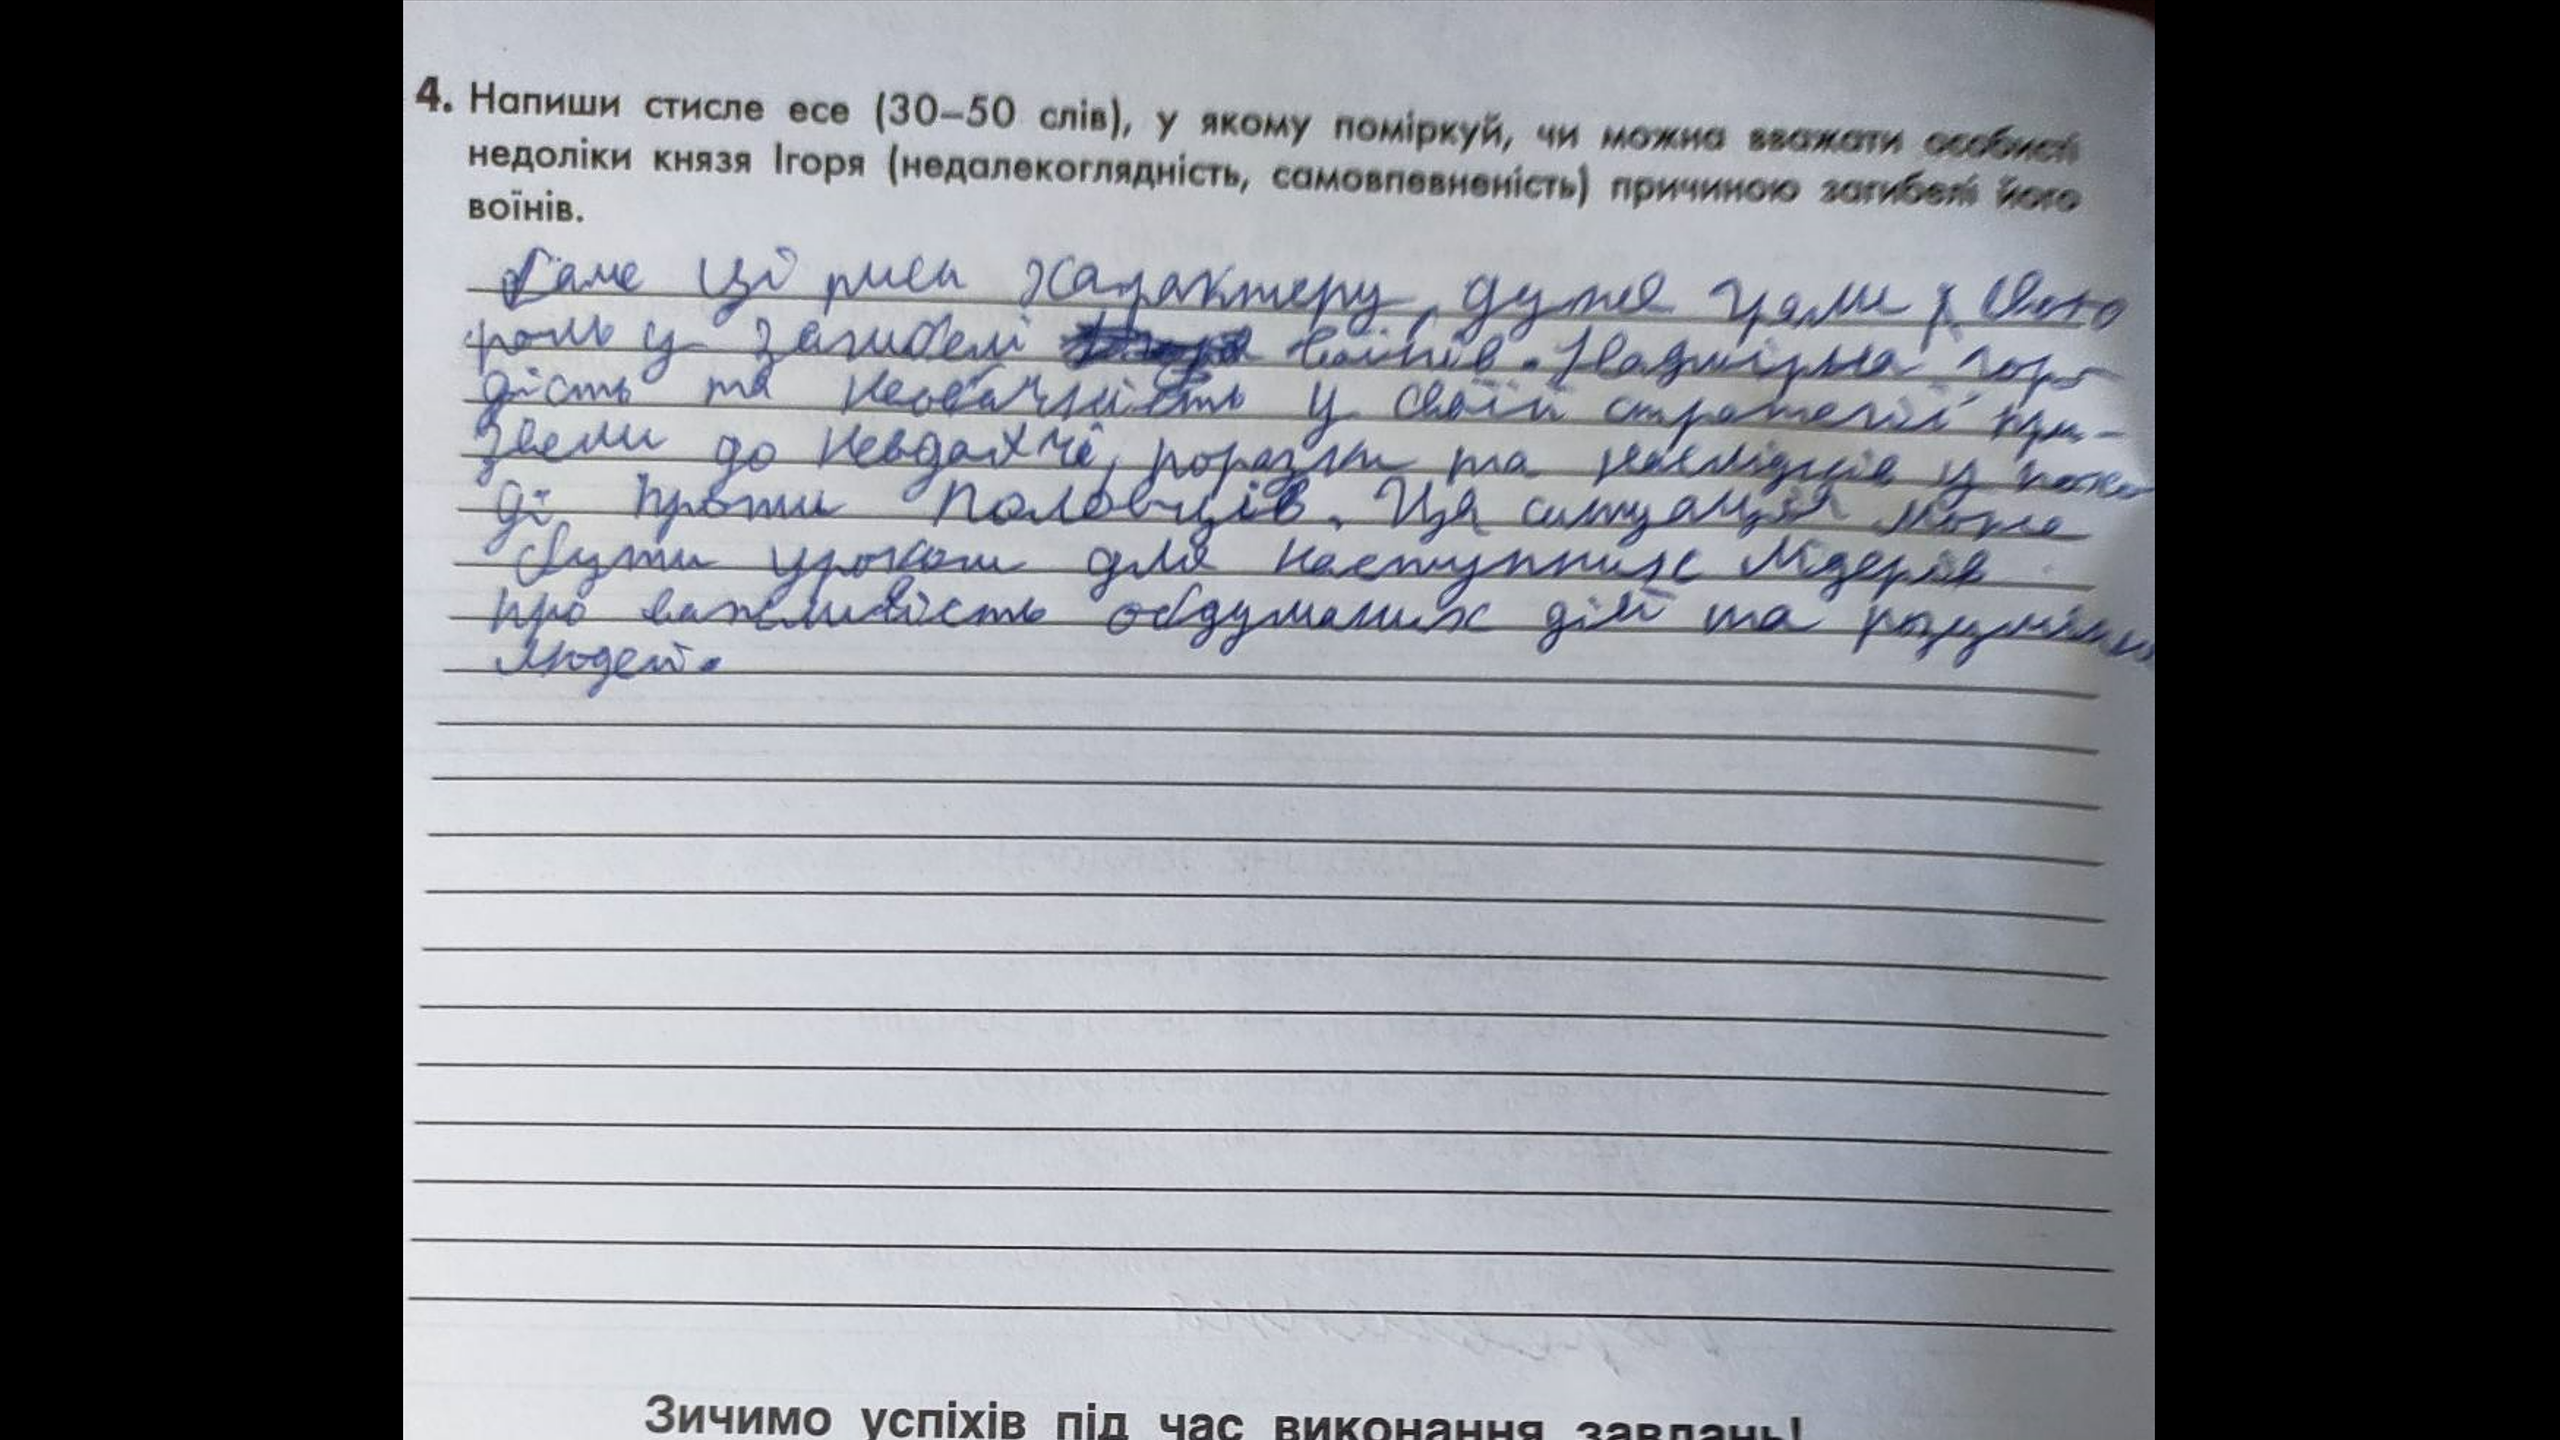 4. Напиши стисле есе (30–50 слів), у якому поміркуй, чи можна вважати особисті
недоліки князя Ігоря (недалекоглядність, самовпевненість) причиною загибелі його
воїнів.
Саме ці риси характеру, дуже
роль у загибелі воїнів. Надмірна гор
дість та необачність у своїй стратегії при-
звели до невдачі, поразки та наслідків у похо
ді проти Половців. Ця ситуація може
бути уроком для наступних лідерів
про важливість обдуманих дій та розуміння
людей.
Зичимо успіхів під час виконання завдань!